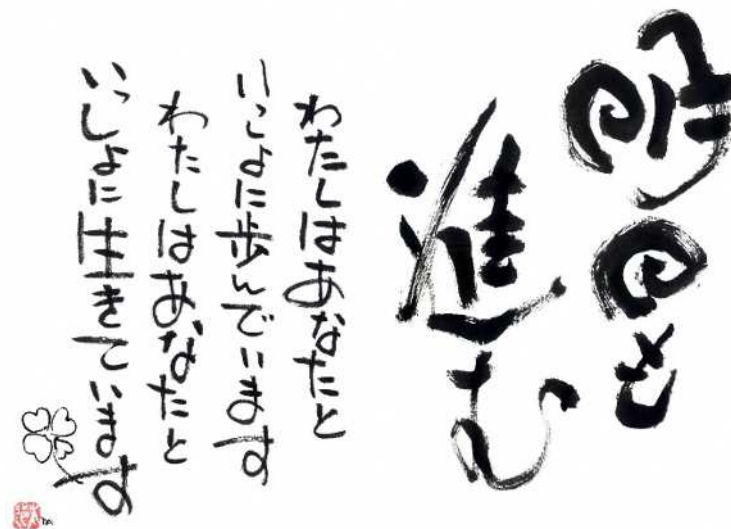 明日を
進む
わたしはあなたと
いっしょに歩んでいます
わたしはあなたと
いっしょに生きています